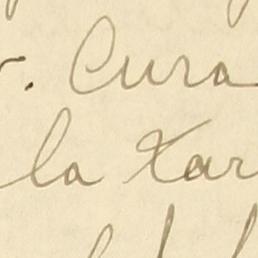 r. Cura
la Xar